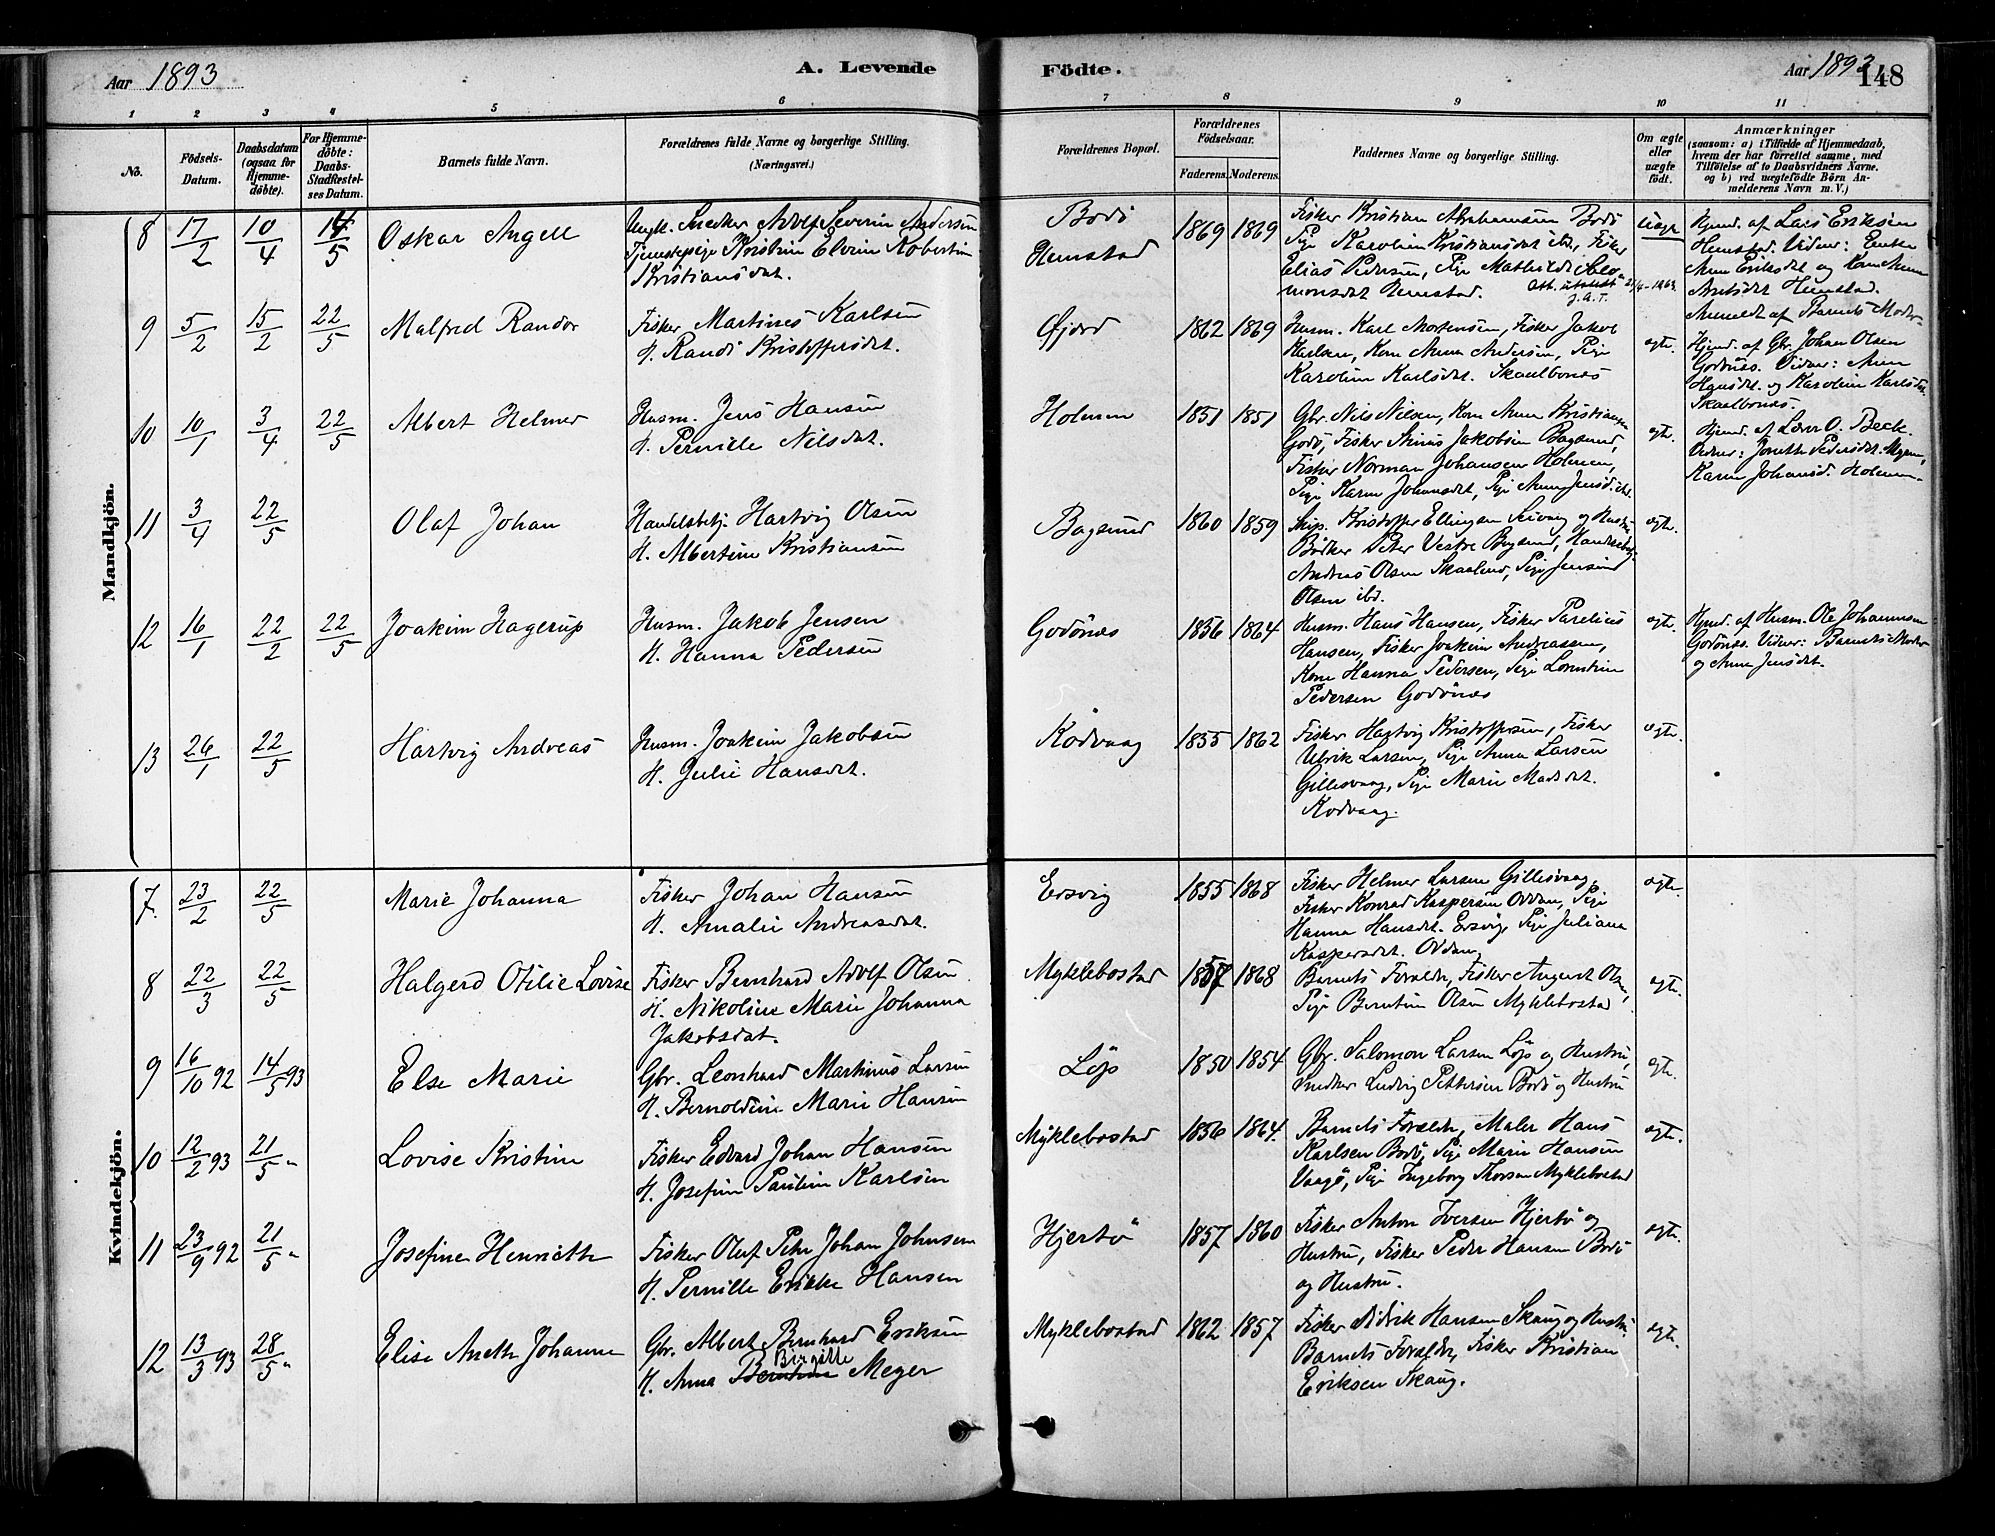 Aar 1893
A. Levende
Födte.
Aar 1893
148
1 2 3 4 5 6 7 8 9 10 11
No.
Födsels-Datum.
Daabsdatum (ogsaa for Hjemme-döbte).
For Hjemme-döbte: Daabs-Stadfæstel-ses Datum.
Barnets fulde Navn.
Forældrenes fulde Navne og borgerlige Stilling. (Næringsvei.)
Forældrenes Bopæl.
Forældrenes Födselsaar.
Faderens. Moderens.
Faddernes Navne og borgerlige Stilling.
Om ægte eller uægte födt.
Anmærkninger
(saasom: a) i Tilfælde af Hjemmedaab, hvem der har forrettet samme, med Tilföielse af to Daabsvidners Navne. og b) ved uægtefödte Börn An-melderens Navn m. V.)
Mandkjön.
8 17/2 10/4 14/5 Oskar Angell
Ungk. Snedker Adolf Severin Andersen
Tjenestepige Kristine Elvine Robertine
Kristiansdat.
Bodö
Hemstad
1869 1869
Fisker Kristian Abrahamsen Bodö
Pige Karolin Kristiansdat ibd, Fisker
Elias Pedersen, Pige Mathilde Salo-
monsdat Hemstad.
Att. utstedt 21/4-1963.
J.A.T.
uægte
Hjmd. af Lars Eriksen
Hemstad. Vidner: Enken
Anne Eriksdat og Kone Anne
Arntsdat Hemstad.
Anmeldt af Barnets Moder.
9 5/2 15/2 22/5 Malfred Randor
Fisker Martines Karlsen
H. Randi Kristoffersdat.
Øjord
1862 1869
Husm. Karl Mortensen, Fisker Jakob
Karlsen, Kone Anna Andersen, Pige
Karolin Karlsdat. Skaalbones
ægte.
Hjmd. af Gbr. Johan Olsen
Godönes. Vidner: Anne
Hansdat. og Karolin Karlsdat.
Skaalbones.
10 10/1 3/4 22/5 Albert Helmer
Husm. Jens Hansen
H. Pernille Nilsdat.
Holmen
1851 1851
Gbr. Nils Nilsen, Kone Anne Kristiansen
Godö, Fisker Jakobsen Bagsund,
Fisker Norman Johansen Holmen,
Pige Karen Johansdat, Pige Anne Jensd. ibd.
ægte.
Hjmd. af Lærer O. Beck.
Vidner: Jonette Pedersdat. Myren,
Karen Johansd. Holmen.
11 3/4 22/5 Olaf Johan
Handelsbetj. Hartvig Olsen
H. Albertine Kristiansen
Bagsund
1860 1859
Skip. Kristoffer Ellingsen Seivaag og Hustru
Bödker Peter Vestre Bagsund, Handelsbetj.
Andreas Olsen Skaalund, Pige Jensine
Olsen ibd.
ægte.
12 16/1 22/2 22/5 Joakim Hagerup
Husm. Jakob Jensen
H. Hanna Pedersen
Godönes
1856 1864
Husm. Hans Hansen, Fisker Parelius
Hansen, Fisker Joakim Andreassen,
Kone Hanna Pedersen, Pige Lorentine
Pedersen Godönes
ægte.
Hjmd. af Husm. Ole Johannesen
Godönes. Vidner: Barnets Moder
og Anne Jensdat.
13 26/1 22/5 Hartvig Andreas
Husm. Joakim Jakobsen
H. Julie Hansdat.
Kodvaag
1855 1862
Fisker Hartvig Kristoffersen, Fisker
Ulrik Larsen, Pige Anna Larsen
Gillesvaag, Pige Marie Madsdat.
Kodvaag.
ægte.
Kvindekjön.
7. 23/2 22/5 Marie Johanna
Fisker Johan Hansen
H. Amalie Andreasdat.
Ersvig
1855 1868
Fisker Helmer Larsen Gillesvaag,
Fisker Konrad Kaspersen Oddan, Pige
Hanna Hansdat. Ersvig, Pige Juliana
Kaspersdat. Oddan,
ægte
8 22/3 22/5 Halgerd Otilie Lovise
Fisker Bernhard Adolf Olsen
H. Nikoline Marie Johanna
Jakobsdat.
Myklebostad
1857 1868
Barnets Forældre, Fisker August Olsen,
Pige Berntine Olsen Myklebostad
ægte.
9 16/10 92 14/5 93 Else Marie
Gbr. Leonhard Martinus Larsen
H. Bernoldine Marie Hansen
Löp
1850 1854
Gbr. Salomon Larsen Löp og Hustru,
Snedker Ludvig Pettersen Bodö og Hustru
ægte.
10 12/2 93 21/5 " Lovise Kristine
Fisker Edvard Johan Hansen
H. Josefine Pauline Karlsen
Myklebostad
1856 1864.
Barnets Forældre, Maler Hans
Karlsen Bodö, Pige Marie Hansen
Vaagö, Pige Ingeborg Thorsen Myklebostad
ægte.
11 23/9 92 21/5 " Josefine Henriette
Fisker Oluf Peter Johan Johnsen
H. Pernille Erikke Hansen
Hjertö
1857 1860
Fisker Anton Iversen Hjertö og
Hustru, Fisker Peder Hansen Bodö
og Hustru.
ægte.
12 13/3 93 28/5 " Elise Anette Johanne
Gbr. Albert Bernhard Eriksen
H. Anna Berntine Birgitte Meyer
Myklebostad
1862 1857
Fisker Didrik Hansen Skaug og Hustru
Barnets Forældre, Fisker Kristian
Eriksen Skaug.
ægte.